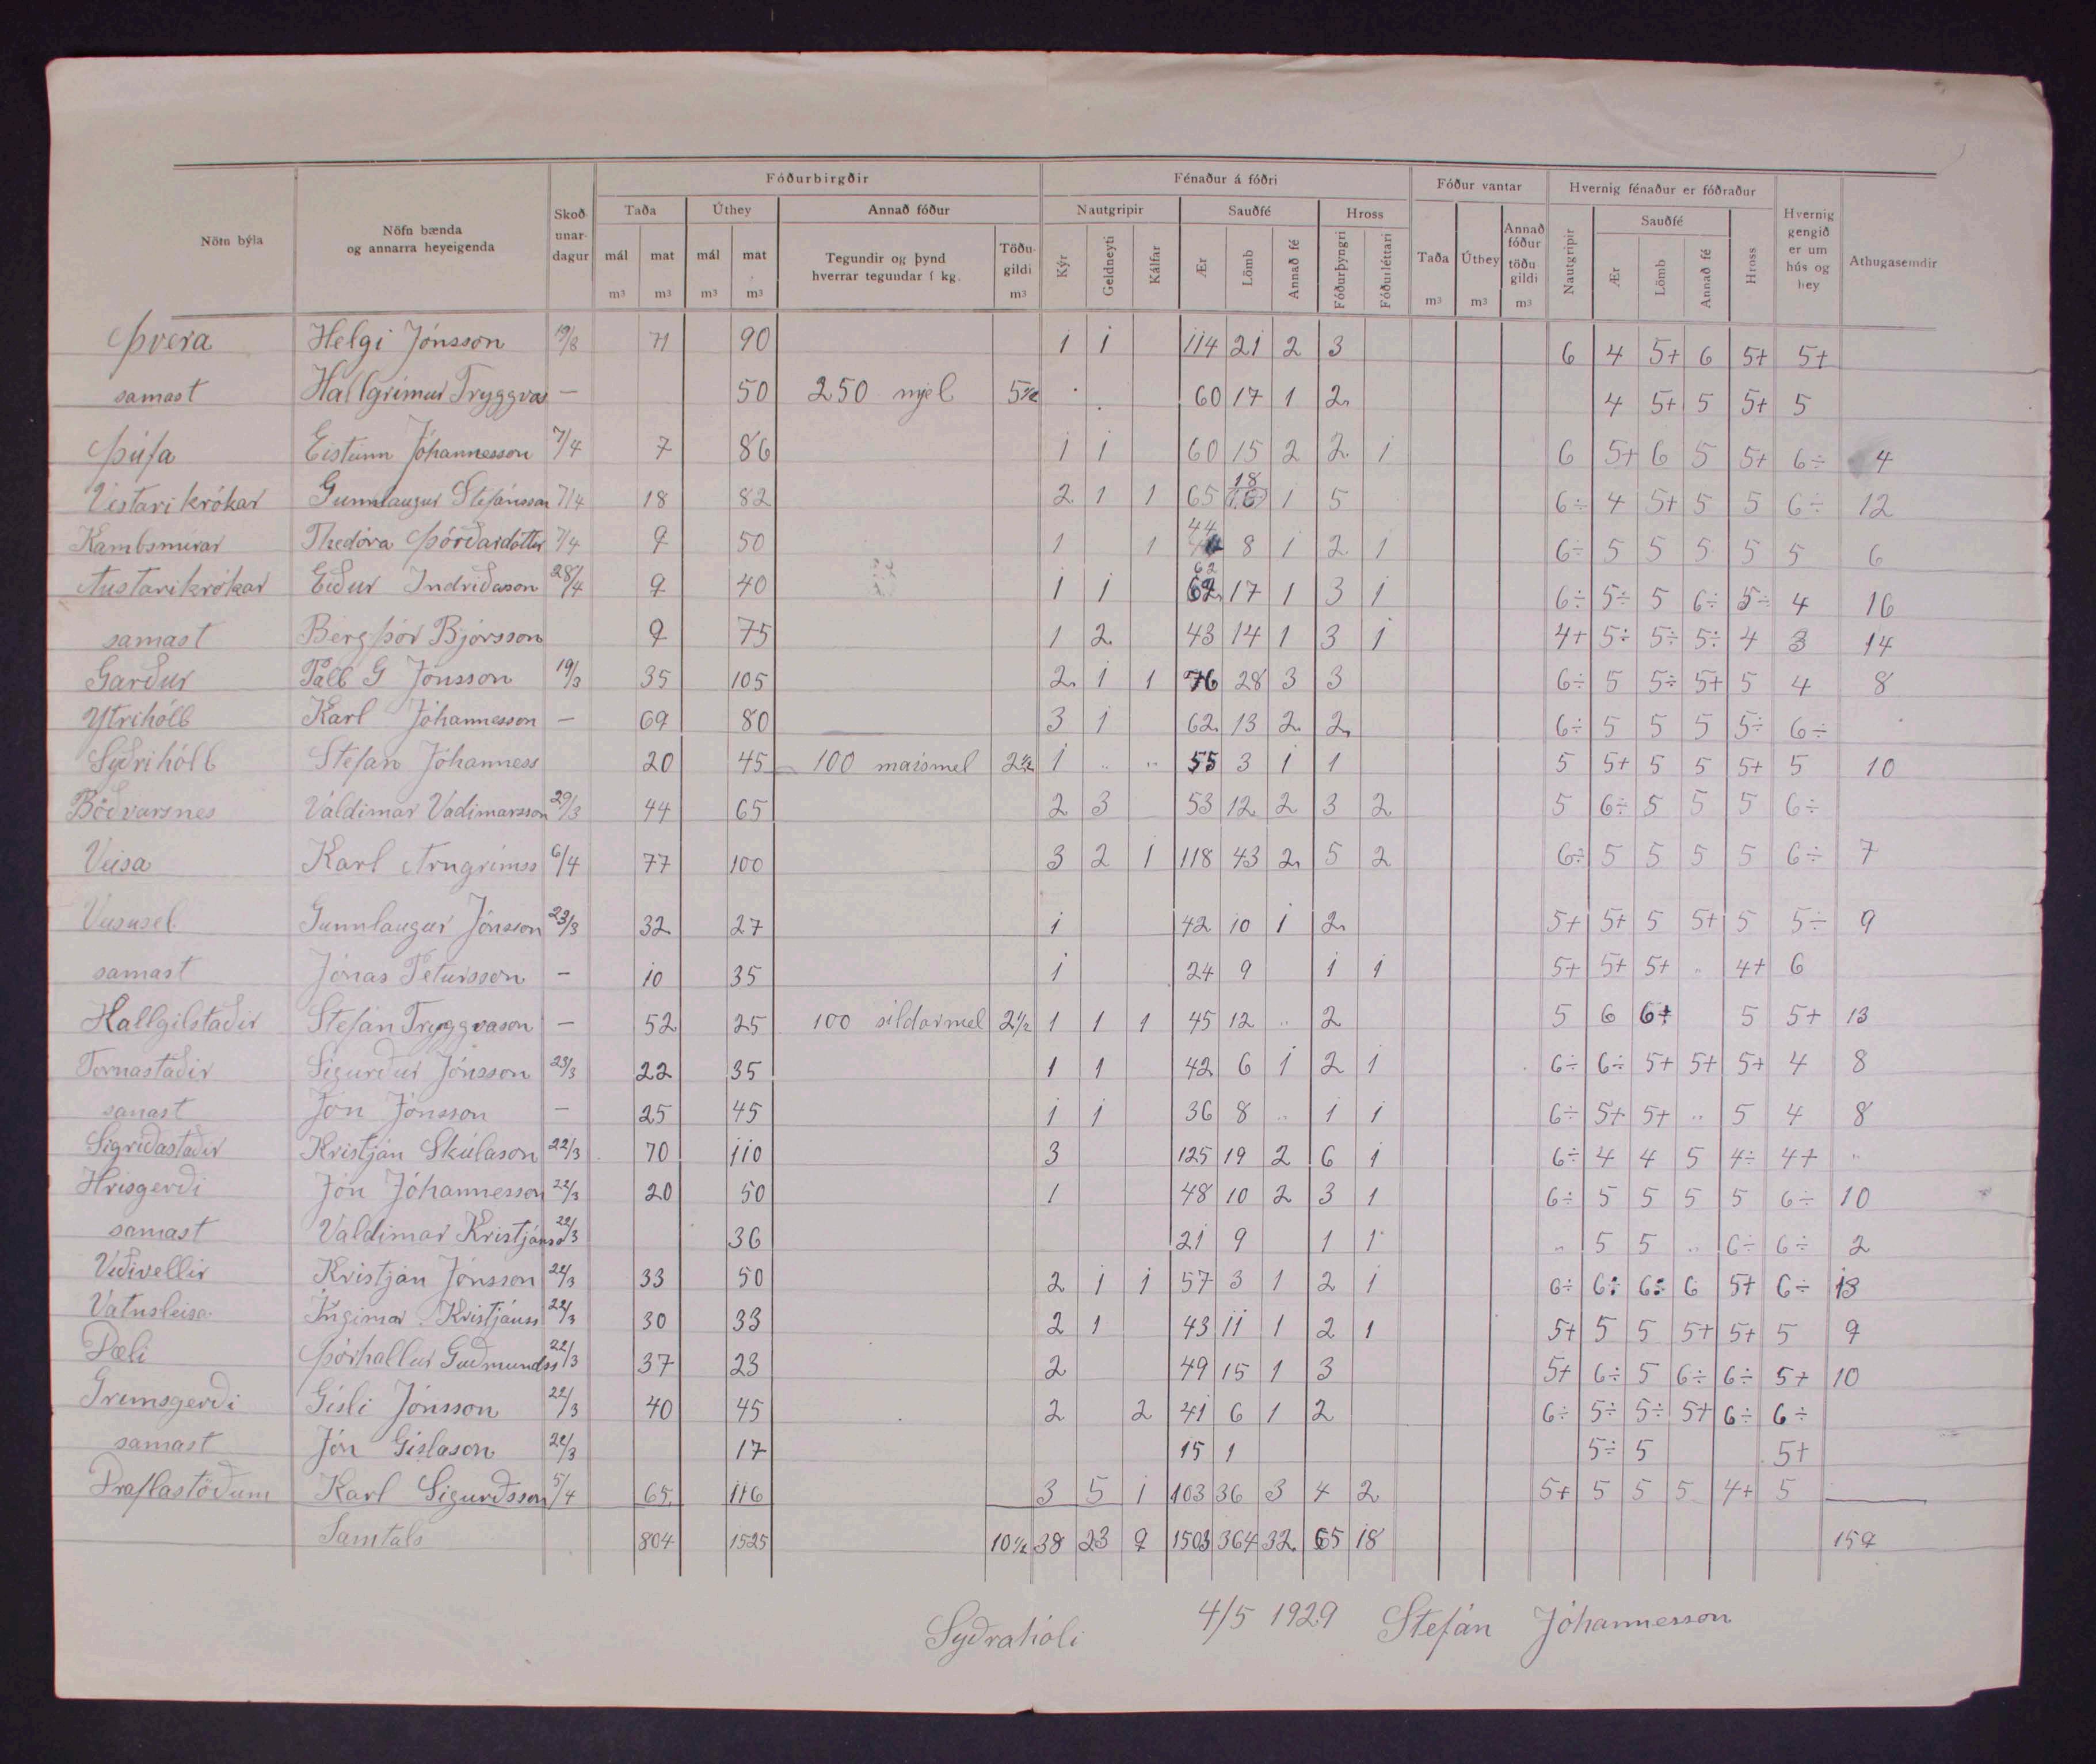 Nöfn býla | Nöfn bænda og annarra heyeigenda | Skoðunardagur | Fóðurbirgðir | Fénaður á fóðri | Fóður vantar | Hvernig fénaður er fóðraður | Hvernig gengið er um hús og hey | Athugasemdir
Taða | Úthey | Annað fóður | Nautgripir | Sauðfé | Hross | Taða | Úthey | Annað fóður töðu gildi | Nautgripir | Sauðfé | Hross
mál m³ | mat m³ | mál m³ | mat m³ | Tegundir og þynd hverrar tegundar í kg. | Töðugildi m³ | Kýr | Geldneyti | Kálfar | Ær | Lömb | Annað fé | Fóðurþyngri | Fóðurléttari | m³ | m³ | m³ | Ær | Lömb | Annað fé
Þvera Helgi Jónsson 19/8 71 90 1 1 114 21 2 3 6 4 5+ 6 5+ 5+
samast Hallgrimur Tryggvas — 50 250 mjel 5½ 60 17 1 2 4 5+ 5 5+ 5
Þúfa Eistunn Jóhannesson 7/4 7 86 1 1 60 15 2 2 1 6 5+ 6 5 5+ 6÷ 4
Vestari krókar Gunnlaugur Stefánsson 7/4 18 82 2 1 1 65 18 1 5 6÷ 4 5+ 5 5 6÷ 12
Kambsmirar Thedóra Þórðardóttir 7/4 9 50 1 1 44 8 1 2 1 6÷ 5 5 5 5 5 6
Austarikrókar Eiður Indriðason 28/4 9 40 1 1 62 62 17 1 3 1 6÷ 5÷ 5 6÷ 5÷ 4 16
samast Bergþór Bjórsson 9 75 1 2 43 14 1 3 1 4+ 5÷ 5÷ 5÷ 4 3 14
Garður Páll G Jónsson 19/3 35 105 2 1 1 76 28 3 3 6÷ 5 5÷ 5+ 5 4 8
Ytrihóll Karl Jóhannesson — 69 80 3 1 62 13 2 2 6÷ 5 5 5 5÷ 6÷
Syðrihóll Stefán Jóhanness 20 45 100 maismel 2½ 1 .. .. 55 3 1 1 5 5+ 5 5 5+ 5 10
Böðvarsnes Valdimar Vadimarsson 29/3 44 65 2 3 53 12 2 3 2 5 6÷ 5 5 5 6÷
Veisa Karl Arngrimss 6/4 77 100 3 2 1 118 43 2 5 2 6÷ 5 5 5 5 6÷ 7
Veisusel Gunnlaugur Jónsson 23/3 32 27 1 42 10 1 2 5+ 5+ 5 5+ 5 5÷ 9
samast Jónas Petursson — 10 35 1 24 9 1 1 5+ 5+ 5+ .. 4+ 6
Hallgilstaðir Stefán Tryggvason — 52 25 100 sildarmel 2½ 1 1 1 45 12 .. 2 5 6 6+ 5 5+ 13
Tornastaðir Sigurður Jónsson 23/3 22 35 1 1 42 6 1 2 1 6÷ 6÷ 5+ 5+ 5+ 4 8
samast Jón Jónsson — 25 45 1 1 36 8 .. 1 1 6÷ 5+ 5+ .. 5 4 8
Sigriðastaðir Kristján Skúlason 22/3 70 110 3 125 19 2 6 1 6÷ 4 4 5 4÷ 4+ ..
Hrisgerði Jón Jóhannesson 22/3 20 50 1 48 10 2 3 1 6÷ 5 5 5 5 6÷ 10
samast Valdimar Kristjánss 22/3 36 21 9 1 1 .. 5 5 .. 6÷ 6÷ 2
Viðivellir Kristján Jónsson 22/3 33 50 2 1 1 57 3 1 2 1 6÷ 6÷ 6÷ 6 5+ 6÷ 13
Vatnsleisa Ingimar Kristjánss 22/3 30 33 2 1 43 11 1 2 1 5+ 5 5 5+ 5+ 5 9
Dæli Þórhallur Guðmundss 22/3 37 23 2 49 15 1 3 5+ 6÷ 5 6÷ 6÷ 5+ 10
Grimsgerði Gisli Jónsson 22/3 40 45 2 2 41 6 1 2 6÷ 5÷ 5÷ 5+ 6÷ 6÷
samast Jón Gislason 22/3 17 15 1 5÷ 5 5+
Draflastöðum Karl Sigurðsson 5/4 65 116 3 5 1 103 36 3 4 2 5+ 5 5 5 4+ 5
Samtals 804 1525 10½ 38 23 9 1503 364 32 65 18 159
Syðrahóli 4/5 1929 Stefán Jóhannesson